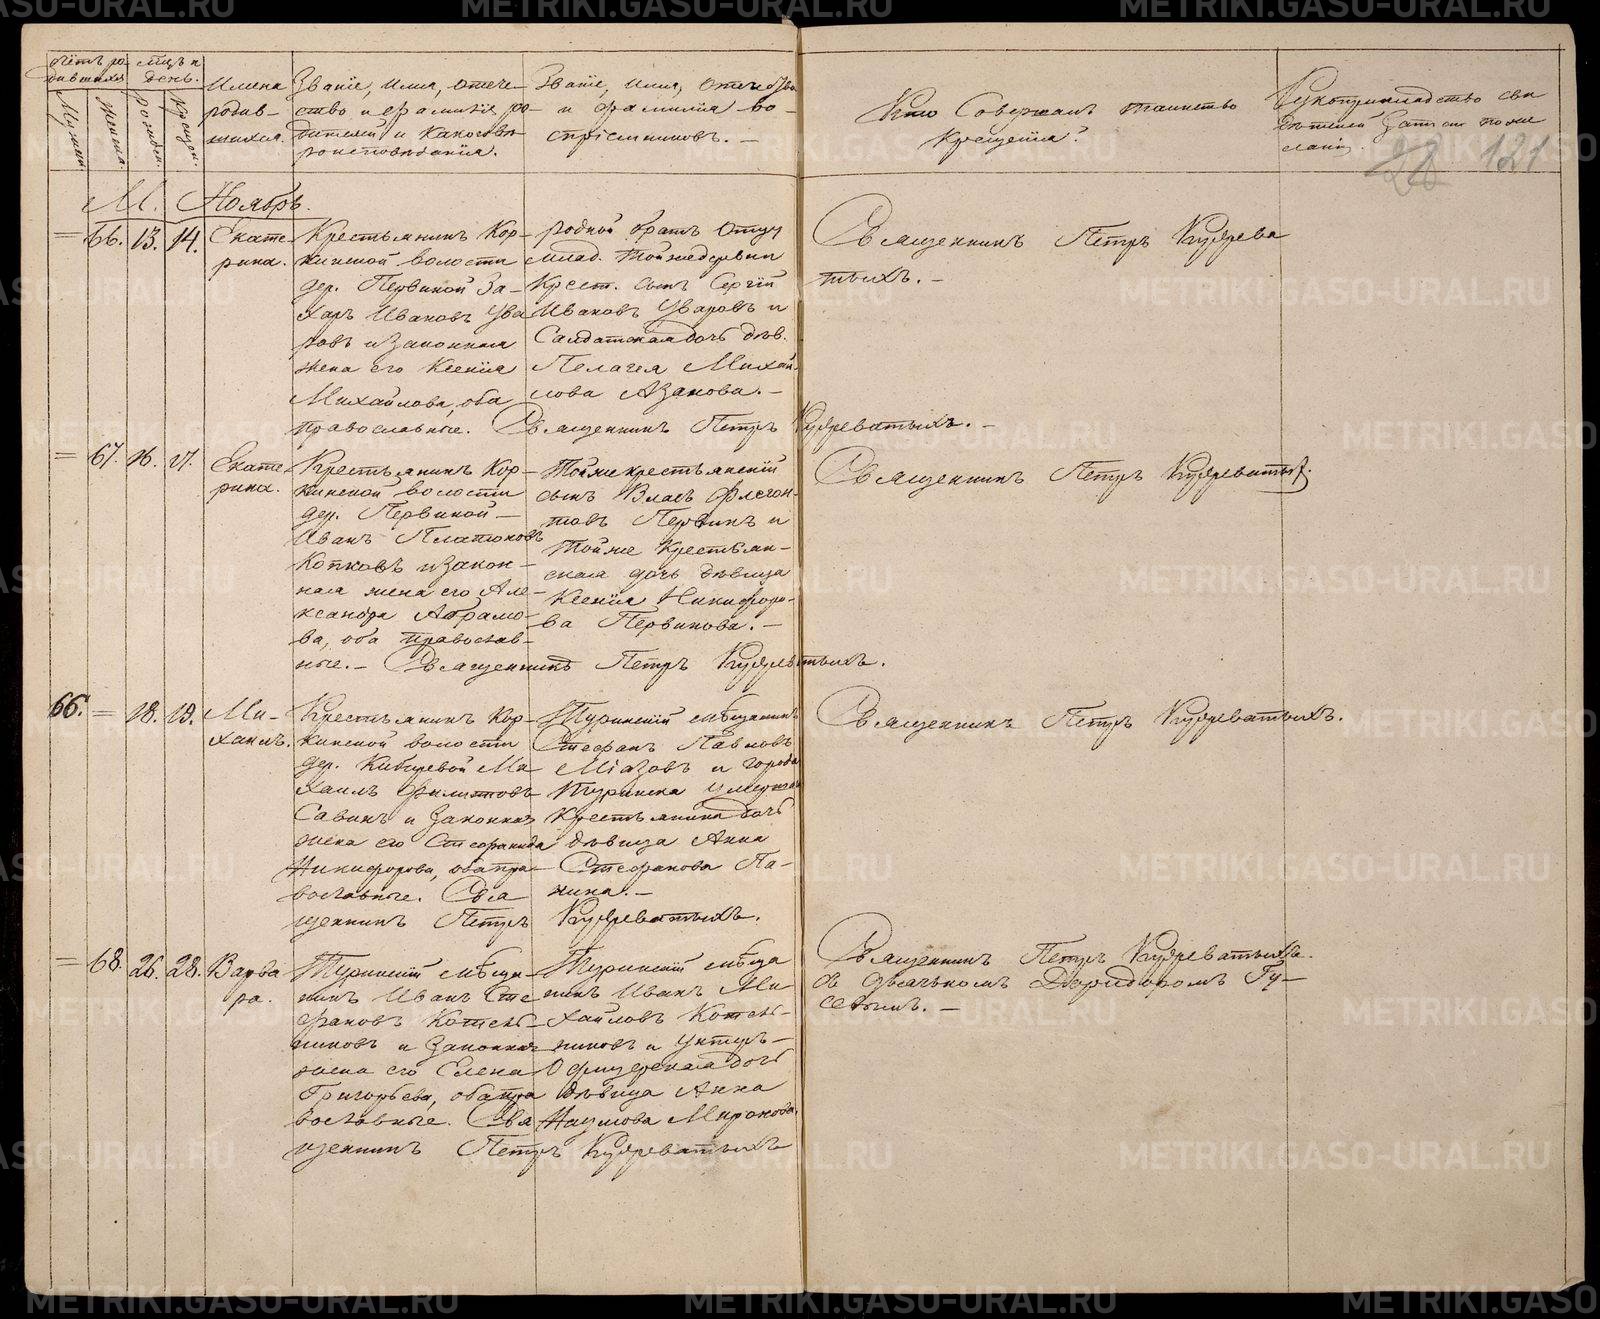 Счетъ ро-
дившихся
Мужеск.
Женска.
мѣцъ и
день.
рожден.
крещен.
Имена
родив-
шихся.
Званіе, имя, отече-
ство и фамилія ро-
дителей и какого вѣ-
роисповѣданія.
Званіе, имя, отечество
и фамилія во-
спріемниковъ. –
Кто Совершалъ таинство
Крещенія?
Рукоприкладство сви
дѣтелей Записи по же
ланію.
121
М. Ноябрь.
= 66. 13. 14.
Екате-
рина.
Крестьянинъ Кор-
кинской волости
дер. Первиной За-
харъ Ивановъ Ува
ровъ и законная
жена его Ксенія
Михайлова, оба
православные. Священникъ Петръ Кудреватыхъ. –
родной братъ Отцу
млад. Той же деревни
Крест. сынъ Сергій
Ивановъ Уваровъ и
Салдатская дочь дѣв.
Пелагея Михай
лова Азанова. –
Священникъ Петръ Кудрева
тыхъ. –
= 67. 16. 17.
Екате
рина.
Крестьянинъ Кор-
кинской волости
дер. Первиной –
Иванъ Платоновъ
Копковъ и закон-
ная жена его Але-
ксандра Абрамо-
ва, оба православ-
ные. – Священникъ Петръ Кудреватыхъ.
Той же крестьянскій
сынъ Власъ Флегон-
товъ Первинъ и
Той же Крестьян-
ская дочь дѣвица
Ксенія Никифоро-
ва Первинова. –
Священникъ Петръ Кудреватыхъ.
66. = 18. 19.
Ми-
хаилъ.
Крестьянинъ Кор-
кинской волости
дер. Кибиревой Ми
хаилъ Филиповъ
Савинъ и Законная
жена его Стефанида
Никифорова, оба пра-
вославные. Свя
щенникъ Петръ Кудреватыхъ.
Туринскій мѣщанинъ
Стефанъ Павловъ
Міазовъ и города
Туринска умершаго
Крестьянина дочь
дѣвица Анна
Стефанова Па-
нина. –
Священникъ Петръ Кудреватыхъ.
= 68. 26. 28.
Варва
ра.
Туринскій мѣща-
нинъ Иванъ Сте
фановъ Котель-
никовъ и Законная
жена его Елена
Григорьева, оба пра
вославные. Свя
щенникъ Петръ Кудреватыхъ
Туринскій мѣща
нинъ Иванъ Ми
хайловъ Котель-
никовъ и Унтеръ-
Офицерская дочь
дѣвица Анна
Наумова Миронова.
Священникъ Петръ Кудреватыхъ.
съ дьячкомъ Доридоромъ Гу-
севымъ. –
METRIKI.GASO-URAL.RU